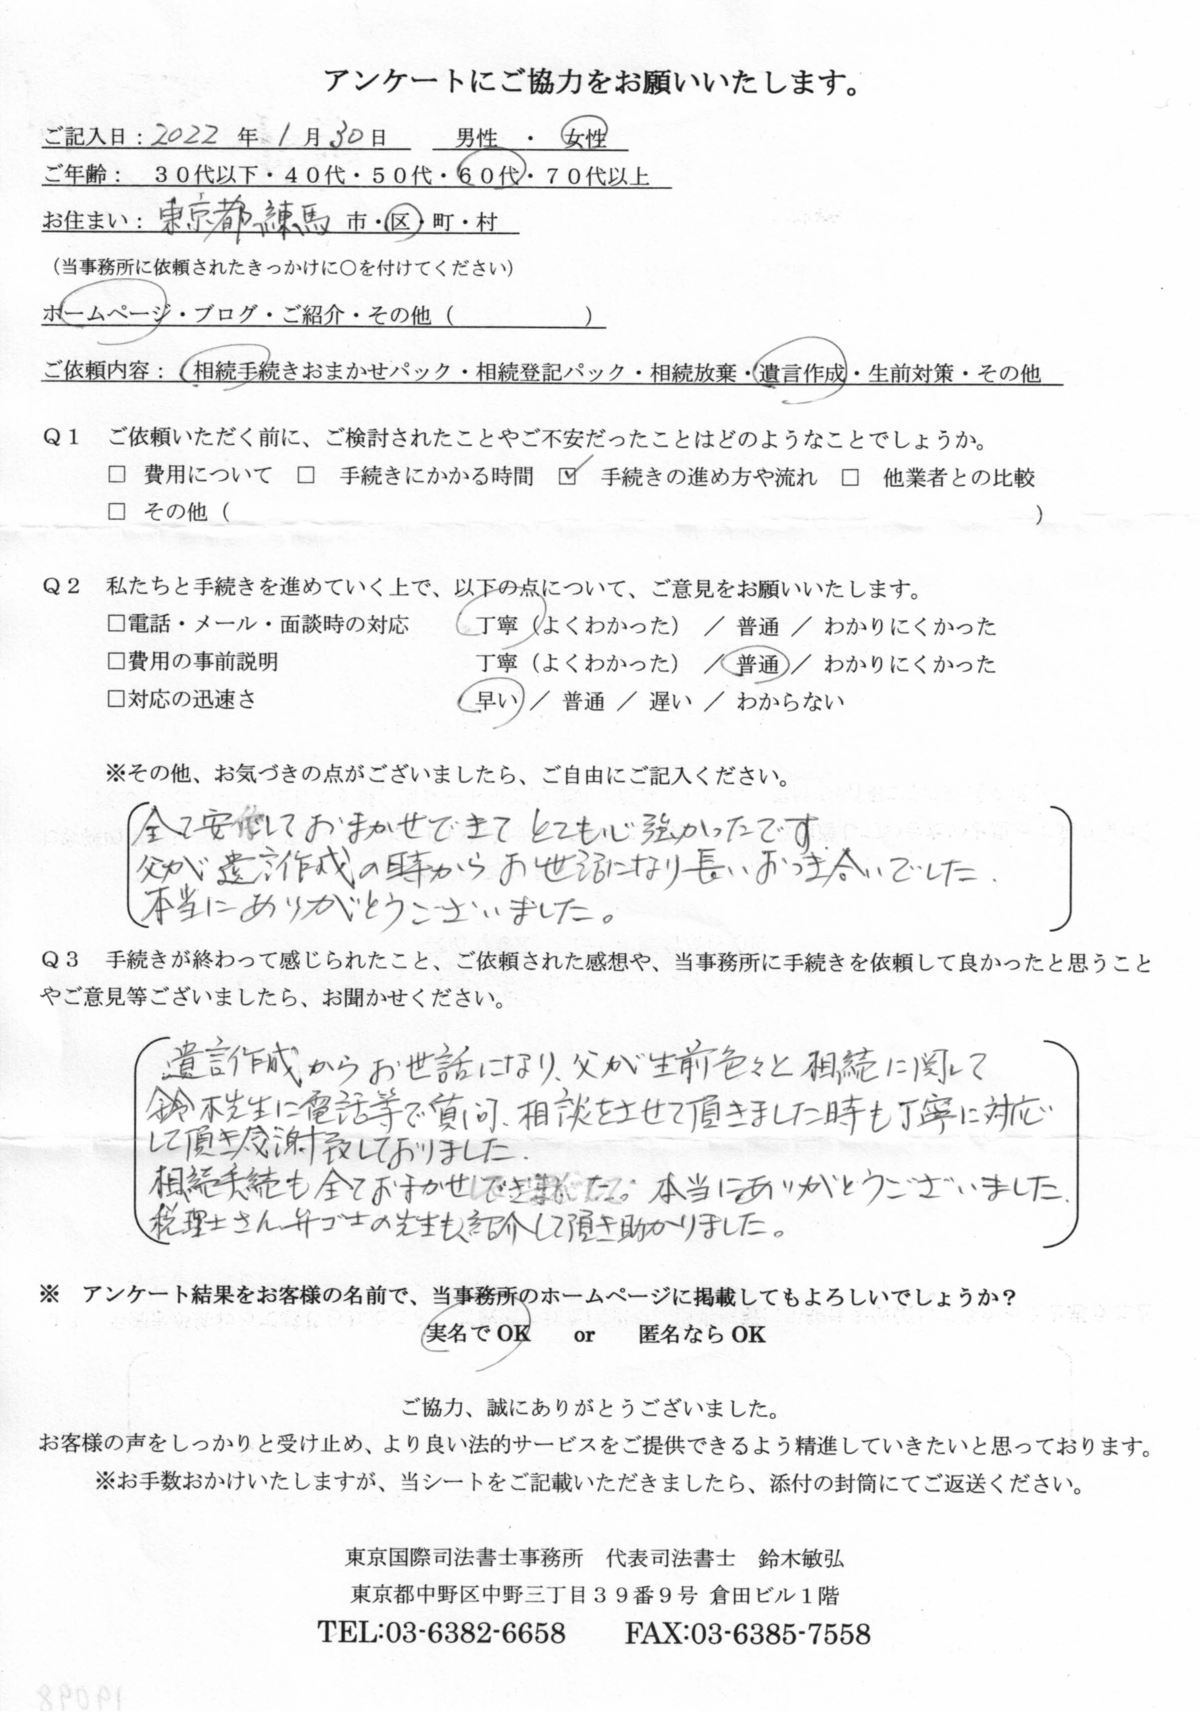 アンケートにご協力をお願いいたします。
ご記入日：2022 年 1 月 30 日　男性 ・ 女性
ご年齢：　３０代以下・４０代・５０代・６０代・７０代以上
お住まい：東京都練馬 市・区・町・村
（当事務所に依頼されたきっかけに○を付けてください）
ホームページ・ブログ・ご紹介・その他（　　　　　　）
ご依頼内容：　相続手続きおまかせパック・相続登記パック・相続放棄・遺言作成・生前対策・その他
Ｑ１　ご依頼いただく前に、ご検討されたことやご不安だったことはどのようなことでしょうか。
□ 費用について　□ 手続きにかかる時間　☑ 手続きの進め方や流れ　□ 他業者との比較
□ その他（　　　　　　）
Ｑ２　私たちと手続きを進めていく上で、以下の点について、ご意見をお願いいたします。
□電話・メール・面談時の対応　丁寧（よくわかった） ／ 普通 ／ わかりにくかった
□費用の事前説明　丁寧（よくわかった） ／ 普通 ／ わかりにくかった
□対応の迅速さ　早い ／ 普通 ／ 遅い ／ わからない
※その他、お気づきの点がございましたら、ご自由にご記入ください。
全て安信しておまかせできて とても心強かったです
父が 遺言作成の時から お世話になり長いおつき合いでした.
本当にありがとうございました。
Ｑ３　手続きが終わって感じられたこと、ご依頼された感想や、当事務所に手続きを依頼して良かったと思うこと
やご意見等ございましたら、お聞かせください。
遺言作成からお世話になり、父が生前色々と相続に関して
鈴木先生に電話等で質問、相談をさせて頂きました時も丁寧に対応
して頂き感謝致しておりました.
相続手続も全ておまかせできました。本当にありがとうございました.
税理士さん 弁ゴ士の先生も紹介して頂き助かりました。
※　アンケート結果をお客様の名前で、当事務所のホームページに掲載してもよろしいでしょうか？
実名で OK　or　匿名なら OK
ご協力、誠にありがとうございました。
お客様の声をしっかりと受け止め、より良い法的サービスをご提供できるよう精進していきたいと思っております。
※お手数おかけいたしますが、当シートをご記載いただきましたら、添付の封筒にてご返送ください。
東京国際司法書士事務所　代表司法書士　鈴木敏弘
東京都中野区中野三丁目３９番９号 倉田ビル１階
TEL:03-6382-6658　FAX:03-6385-7558